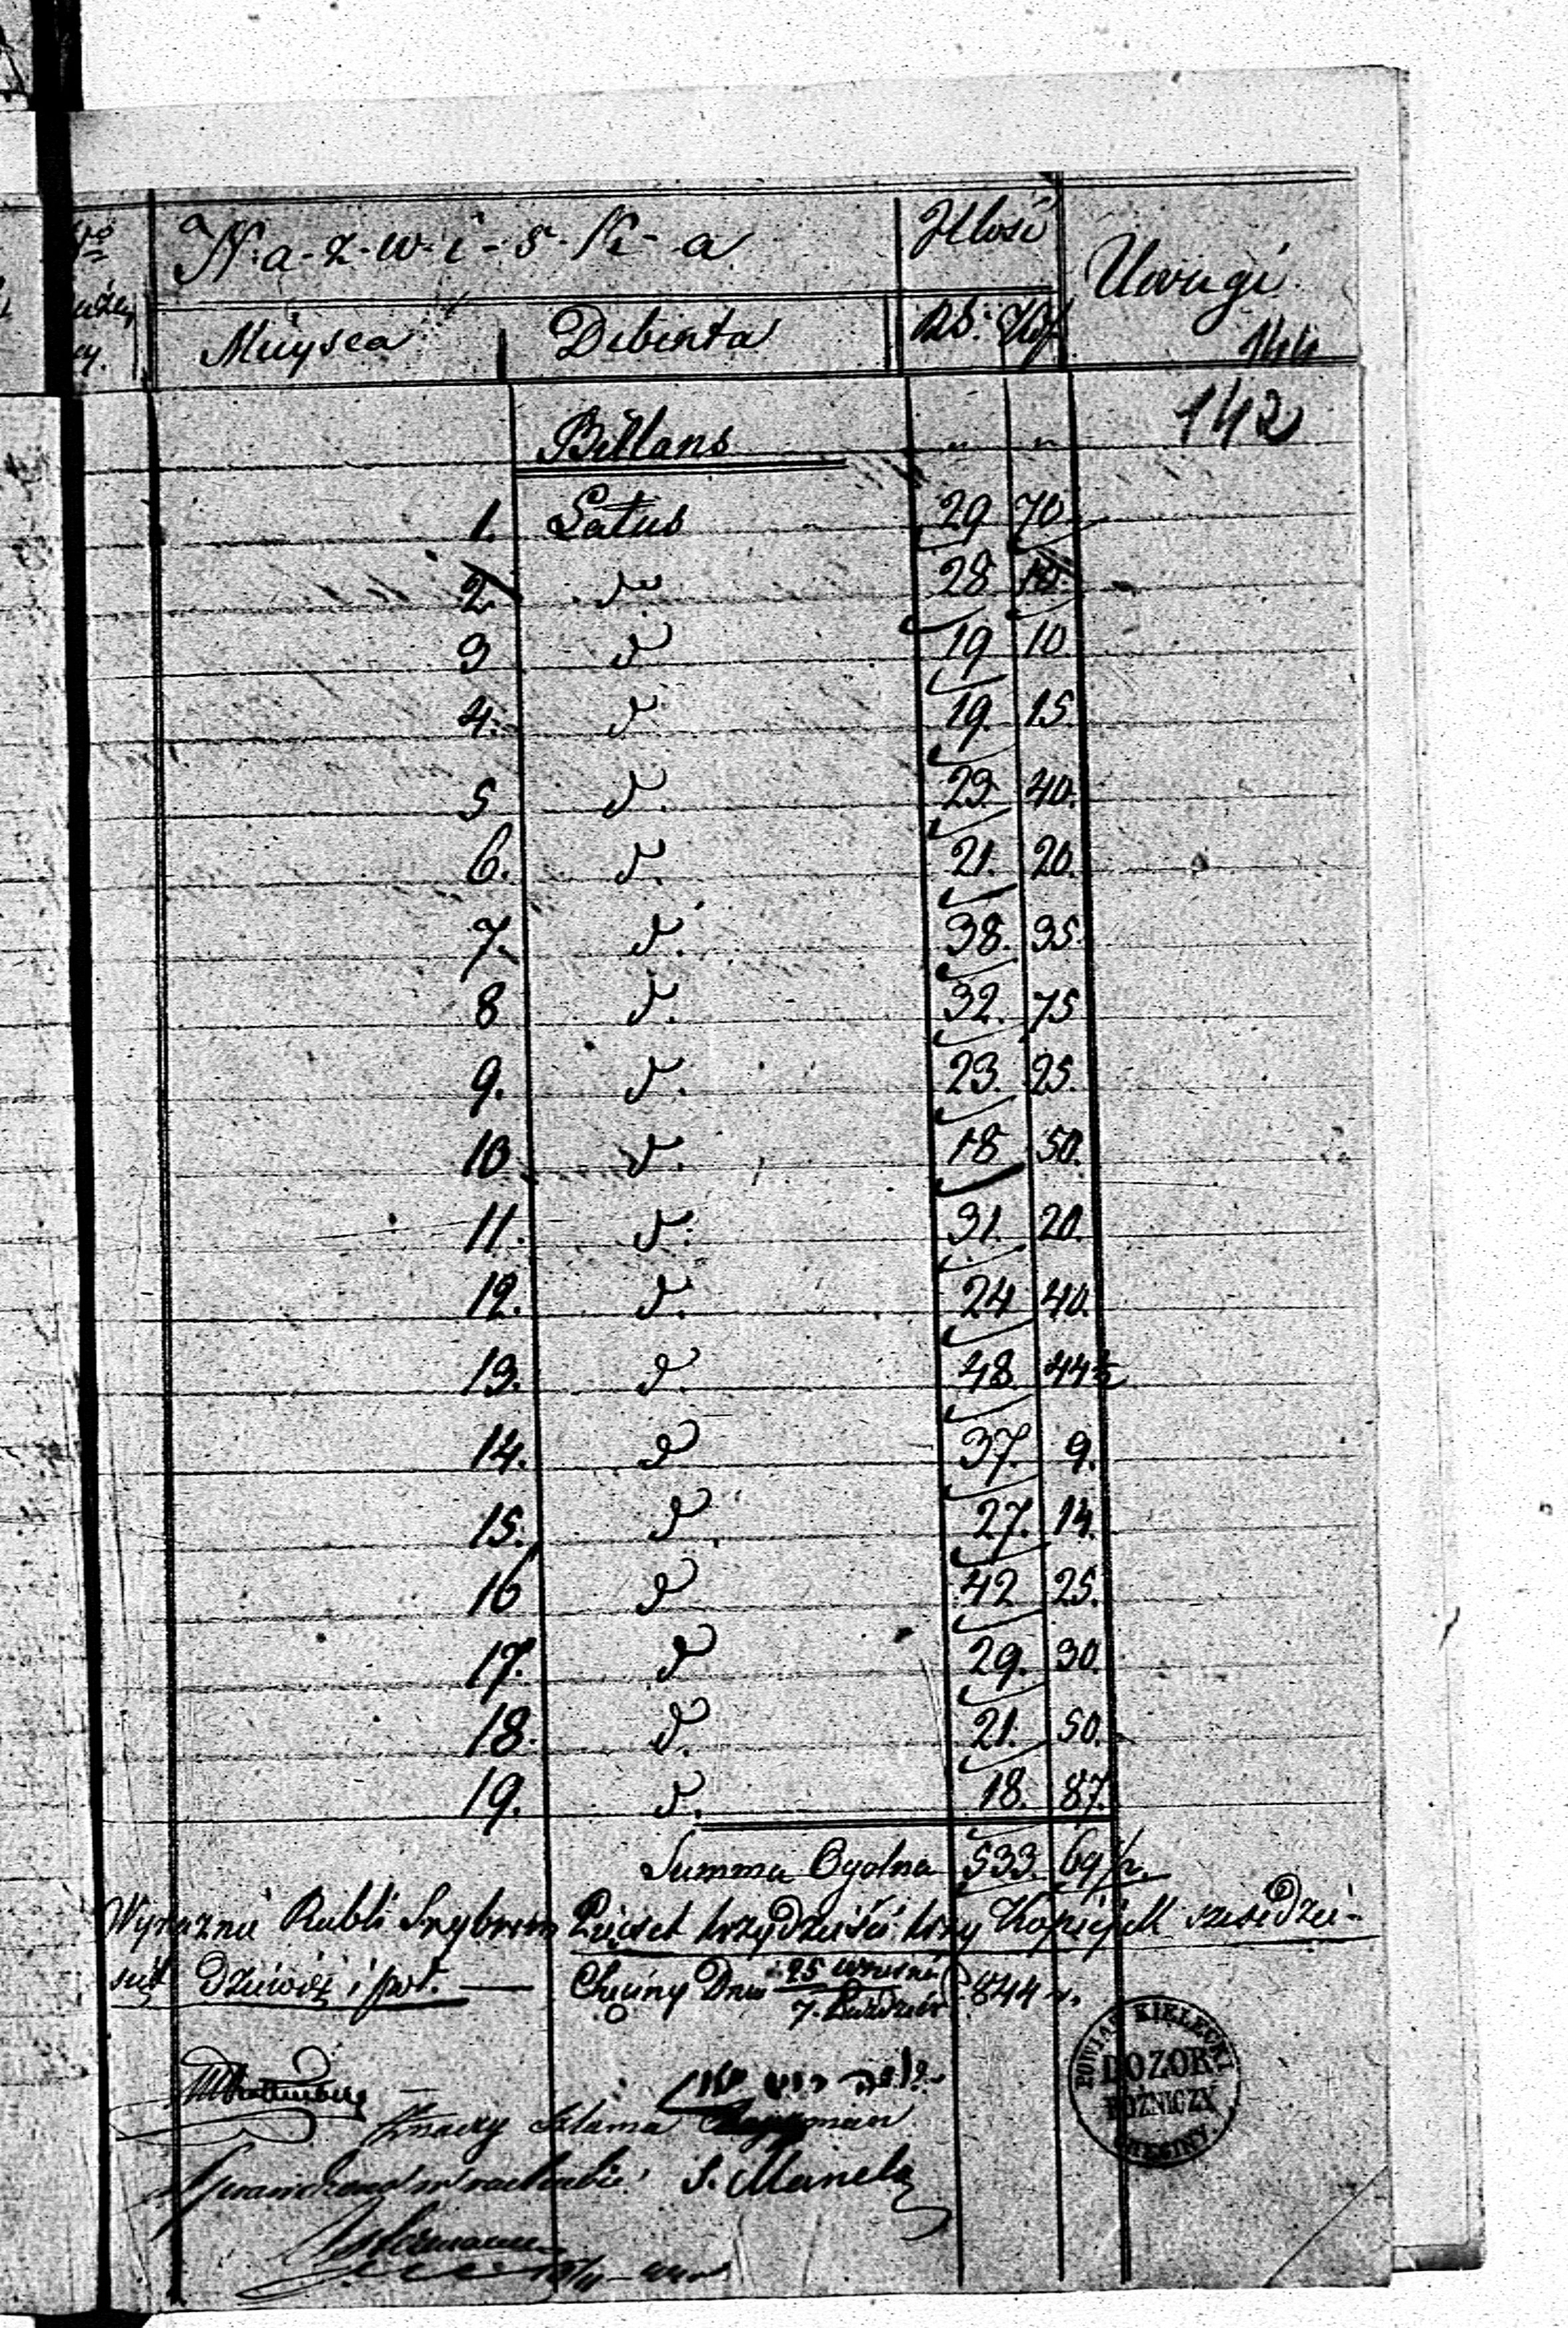 N-a-z-w-i-s-k-a Illość Uwagi
Mieysca Debenta Rs: Kop. 144
Billans " " 142
1. Latus 29 70
2 d. 28 10.
3 d 19 10
4. d. 19. 15
5 d. 23. 40.
6. d. 21. 20.
7. d. 38. 35.
8 d. 32. 75
9. d. 23. 25.
10 d. 18 50.
11. d. 31. 20.
12. d. 24 40.
13. d. 48 44½
14. d 37. 9.
15. d 27. 14.
16 d 42 25.
17. d 29. 30.
18. d. 21. 50.
19. d. 18. 87.
Summa Ogolna 533. 69½.
Wyraźnie Rubli Srebrem Pięćset trzydzieści trzy Kopiejek sześdzie-
siąt dziewięć i pół. — Chęciny Dnia 25 września 844 r.
7. Paździer
Znaczy Szlama
Sprawdzono w rachunku S. Manela
POWIAT KIELECKI
DOZOR
BOŻNICZY
CHĘCINY.